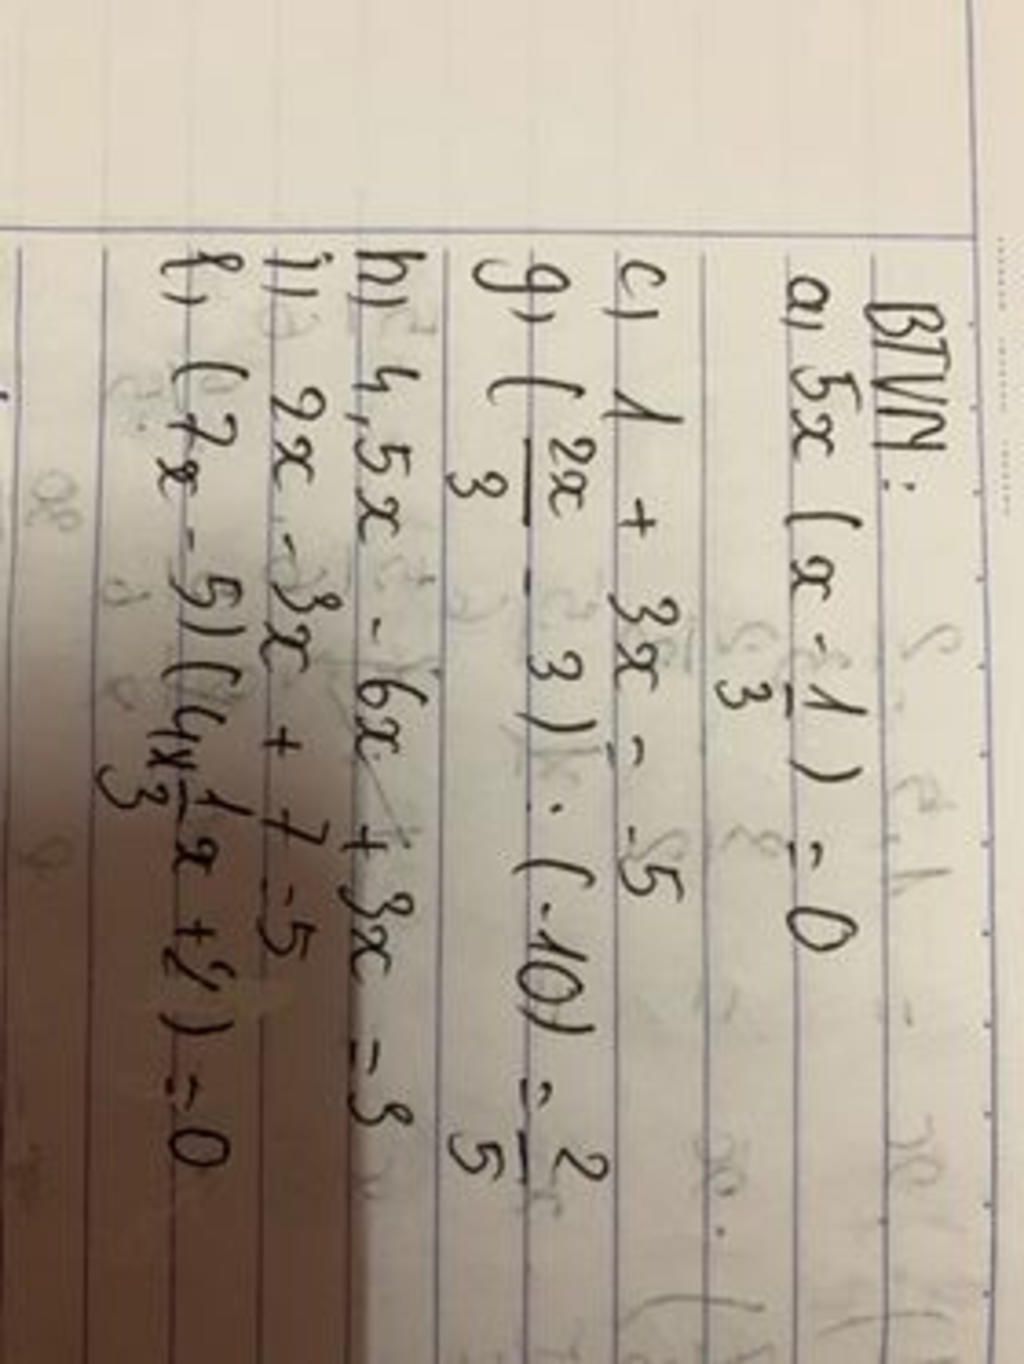 BTVN:
a, 5x (x - 1/3) = 0
c, 1 + 3x = -5
g, (2x/3 - 3) . (-10) = 2/5
h, 4,5x - 6x + 3x = 3
i) 2x - 3x + 7 = 5
(7x - 5) ( 1/3 x + 2) = 0